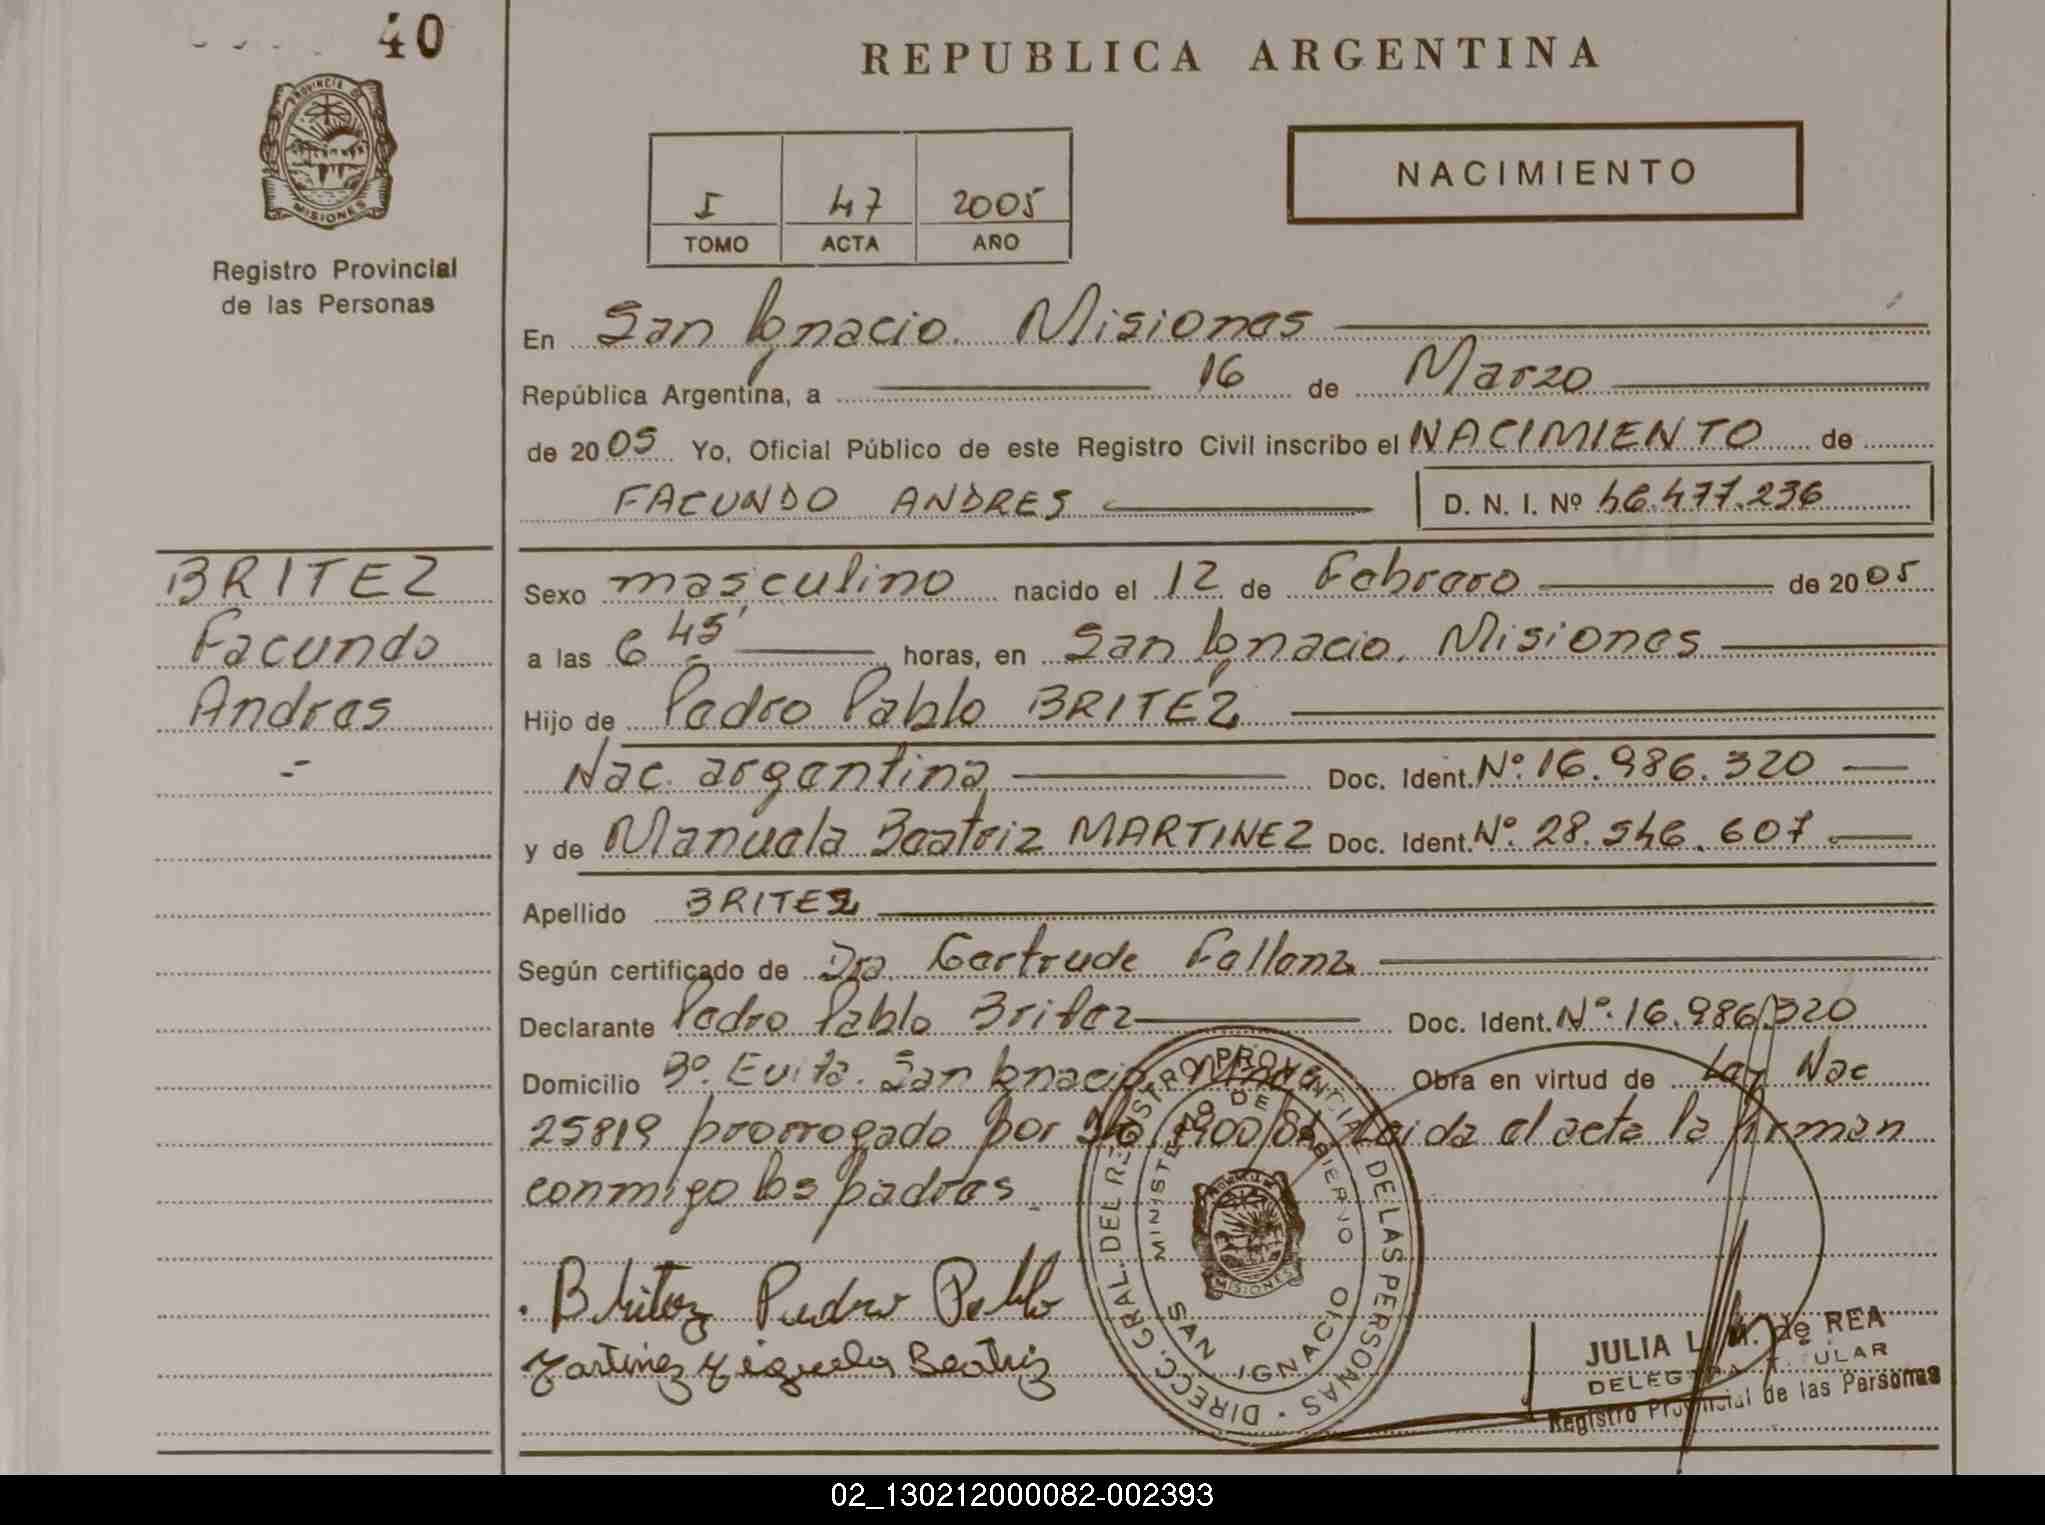 40
REPUBLICA ARGENTINA
PROVINCIA DE
MISIONES
Registro Provincial
de las Personas
NACIMIENTO
I 47 2005
TOMO ACTA AÑO
En San Ignacio. Misiones
República Argentina, a 16 de Marzo
de 2005 Yo, Oficial Público de este Registro Civil inscribo el NACIMIENTO de
FACUNDO ANDRES D. N. I. Nº 46.477.236
BRITEZ
Facundo
Andres
Sexo masculino nacido el 12 de Febrero de 2005
a las 6 45' horas, en San Ignacio. Misiones
Hijo de Pedro Pablo BRITEZ
Nac. argentina Doc. Ident. Nº. 16.986.320
y de Manuela Beatriz MARTINEZ Doc. Ident. Nº. 28.546.607
Apellido BRITEZ
Según certificado de Dra. Gertrude Fallenz
Declarante Pedro Pablo Britez Doc. Ident. Nº. 16.986.320
Domicilio Bº. Evita. San Ignacio. Mnes Obra en virtud de Ley Nac
25819 prorrogado por Leida el acta la firman
conmigo los padres
Britez Pedro Pablo
Martinez Beatriz
DIRECC. GRAL. DEL REGISTRO PROVINCIAL DE LAS PERSONAS
MINISTERIO DE GOBIERNO
MISIONES
SAN IGNACIO
JULIA L. M. de REA
DELEGADA TITULAR
Registro Provincial de las Personas
02_130212000082-002393